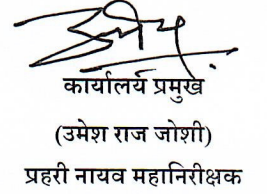 कार्यालय प्रमुख
(उमेश राज जोशी)
प्रहरी नायव महानिरीक्षक